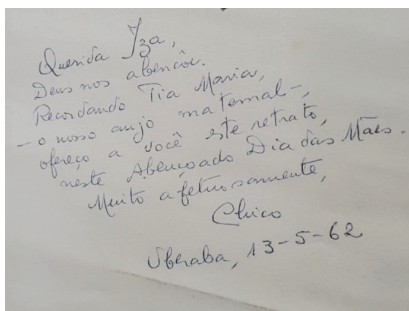 Querida Iza,
Deus nos abençôe.
Recordando Tia Maria,
- o nosso anjo maternal -,
ofereço a você este retrato,
neste Abençoado Dia das Mães.
Muito afetuosamente,
Chico
Uberaba, 13-5-62